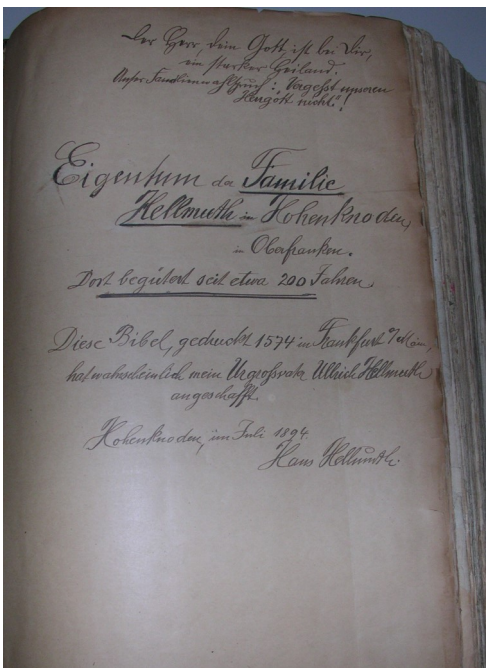 Der Herr, dein Gott, ist bei Dir,
ein starker Heiland.
Unser Familienwahlspruch: „Vergeßt unseren
Herrgott nicht“!
Eigentum der Familie
Hellmuth in Hohenknoden,
in Oberfranken.
Dort begütert seit etwa 200 Jahren.
Diese Bibel, gedruckt 1574 in Frankfurt
hat wahrscheinlich mein Urgroßvater Ullrich Hellmuth
angeschafft.
Hohenknoden, im Juli 1894.
Hans Hellmuth.